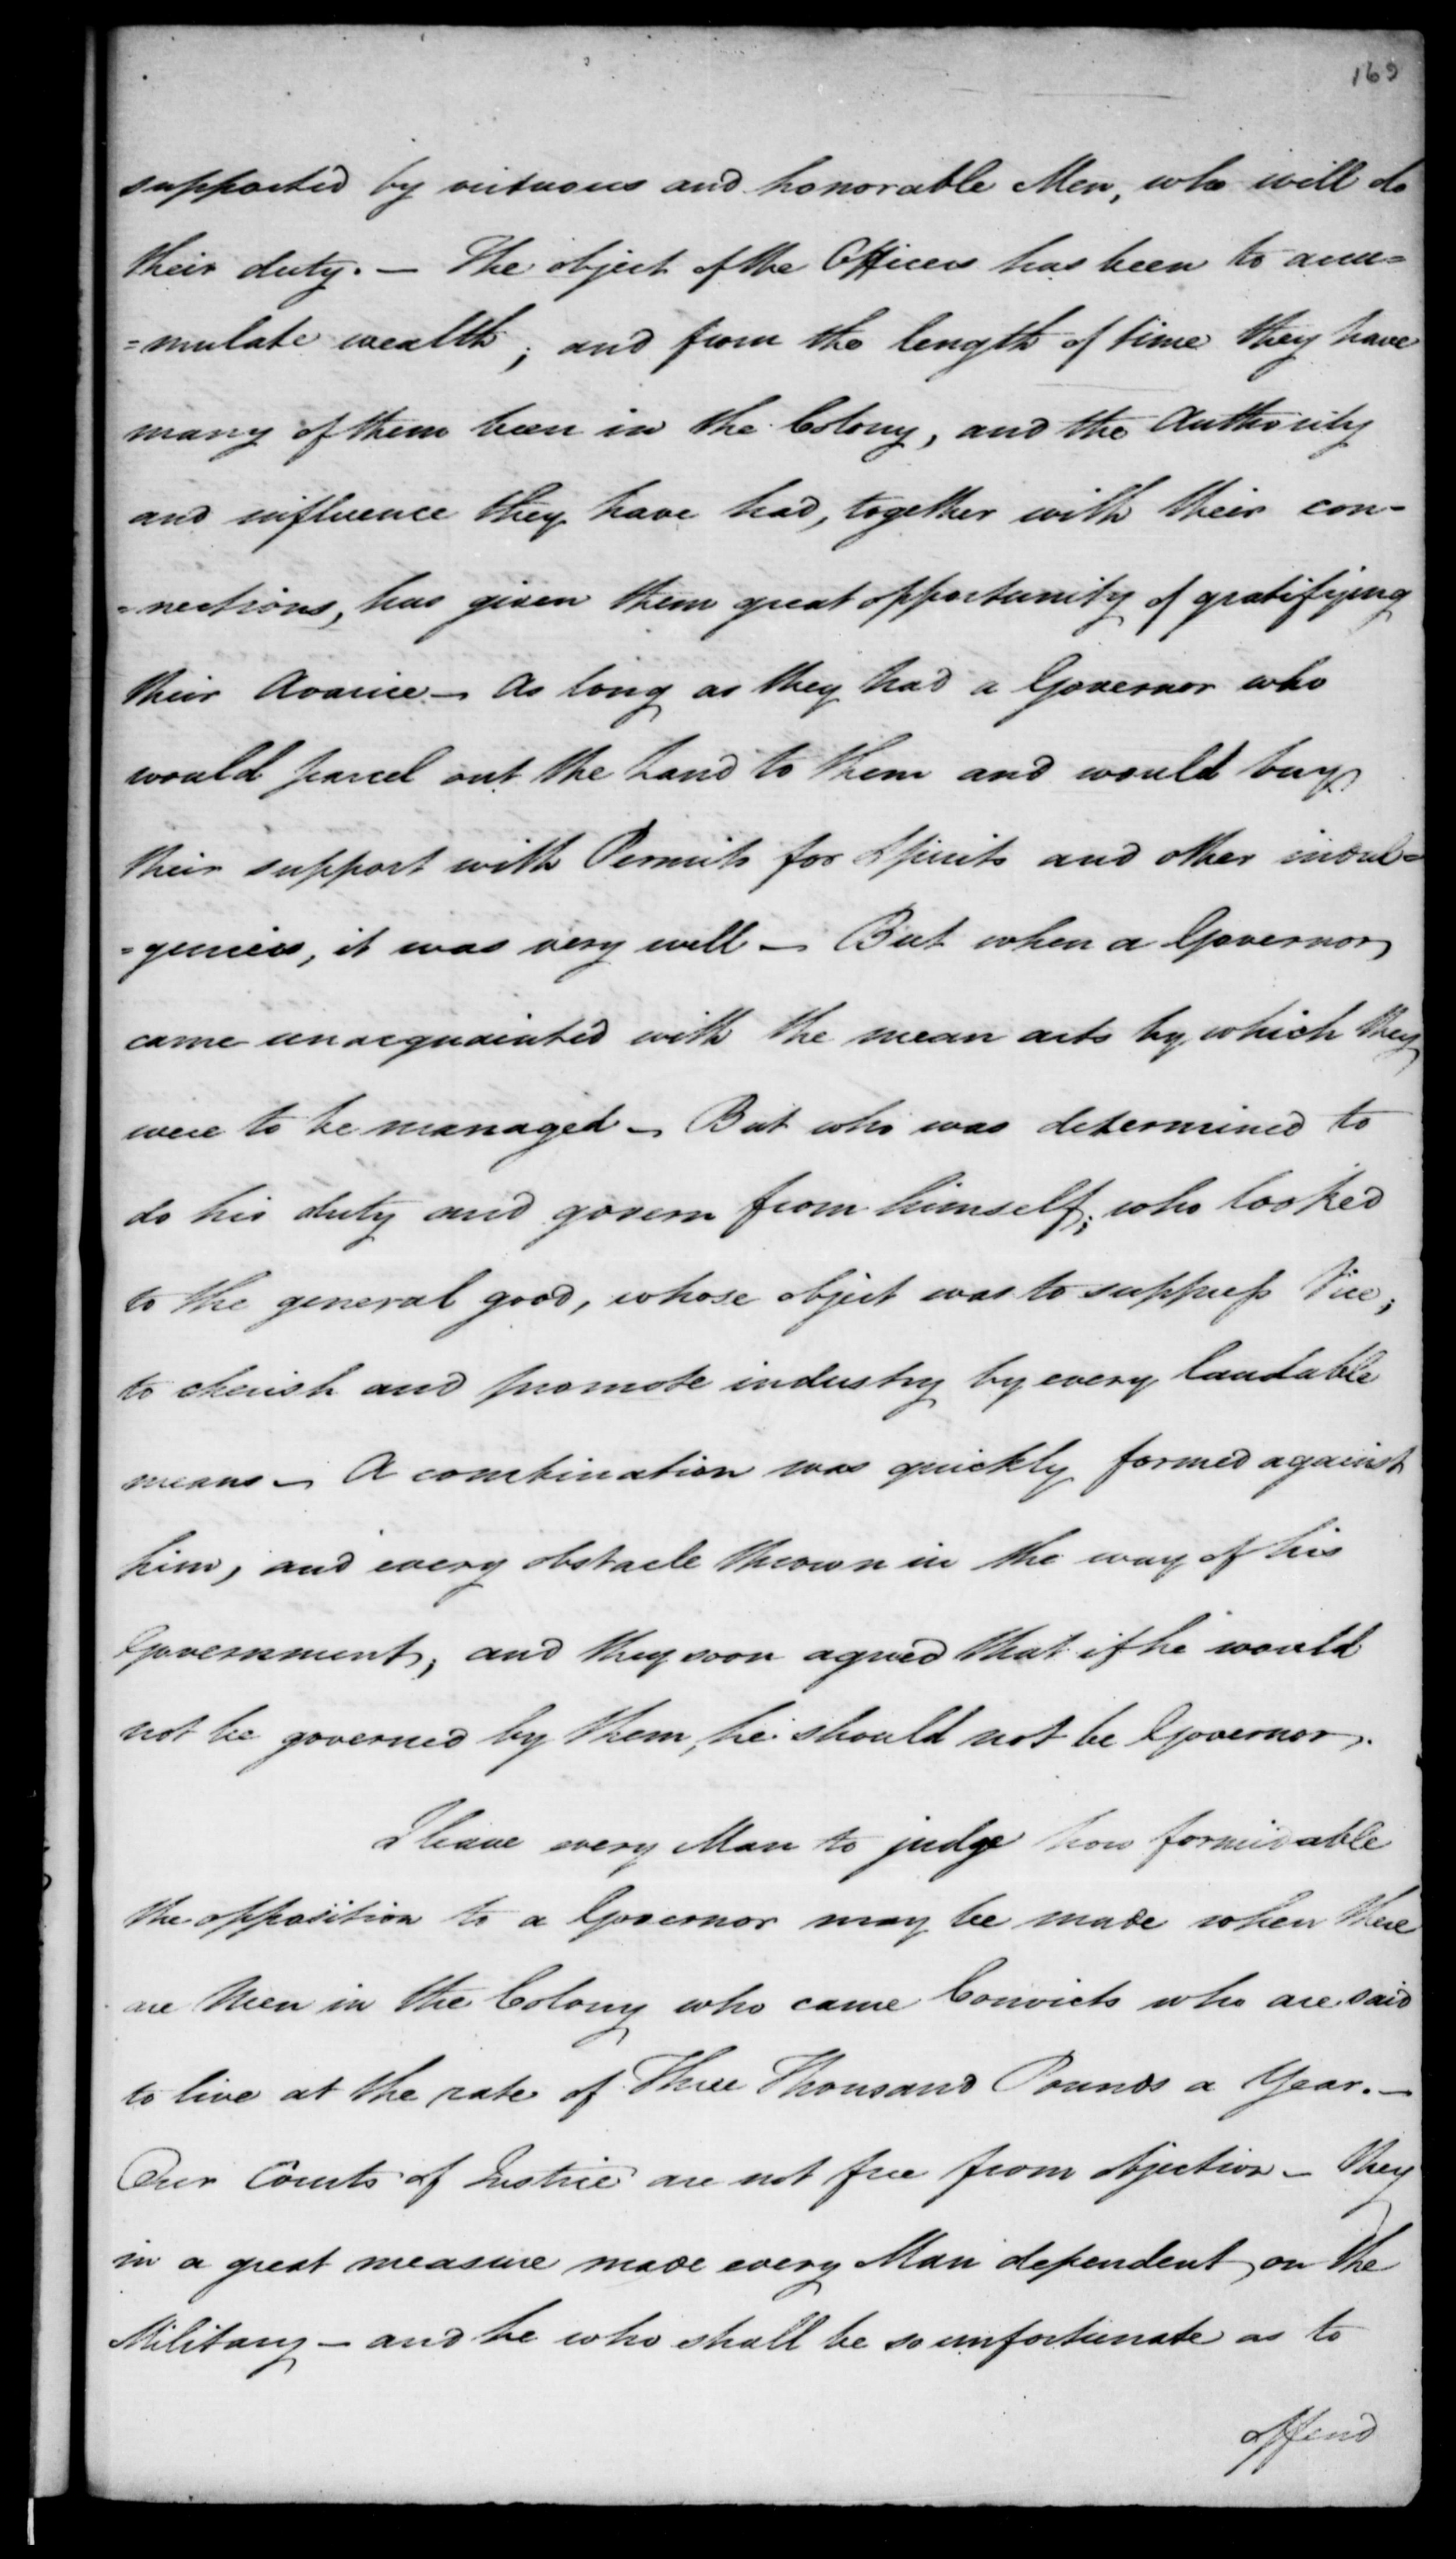 169
supported by virtuous and honorable Men, who will do
their duty. — The object of the Officers has been to accu=
=mulate wealth; and from the length of time they have
many of them been in the Colony, and the Authority
and influence they have had, together with their con-
=nections, has given them great opportunity of gratifying
their Avarice — As long as they had a Governor who
would parcel out the Land to them and would buy
their support with Permits for Spirits and other indul=
=gencies, it was very well — But when a Governor
came unacquainted with the mean arts by which they
were to be managed — But who was determined to
do his duty and govern from himself; who looked
to the general good, whose object was to suppress Vice;
to cherish and promote industry by every laudable
means — A combination was quickly formed against
him, and every obstacle thrown in the way of his
Government; and they soon agreed that if he would
not be governed by them, he should not be Governor.
I leave every Man to judge how formidable
the opposition to a Governor may be made when there
are Men in the Colony who came Convicts who are said
to live at the rate of Three Thousand Pounds a Year. —
Our Courts of Justice are not free from objection — They
in a great measure made every Man dependent on the
Military — and he who shall be so unfortunate as to
offend